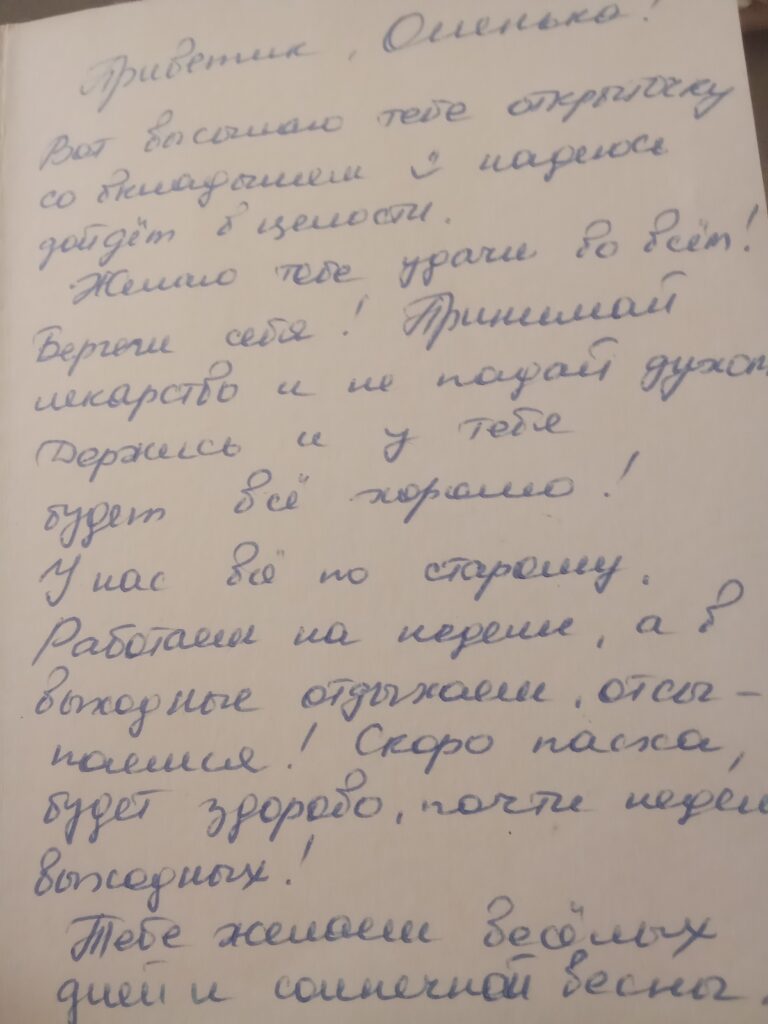 Приветик, Оленька!
Вот высылаю тебе открыточку
со вкладышем надеюсь
дойдёт в целости.
Желаю тебе удачи во всём!
Береги себя! Принимай
лекарство и не падай духом
Держись и у тебя
будет всё хорошо!
У нас всё по старому.
Работаем на неделе, а в
выходные отдыхаем, отсы-
паемся! Скоро пасха,
будет здорово, почти недел
выходных!
Тебе желаем весёлых
дней и солнечной весны.